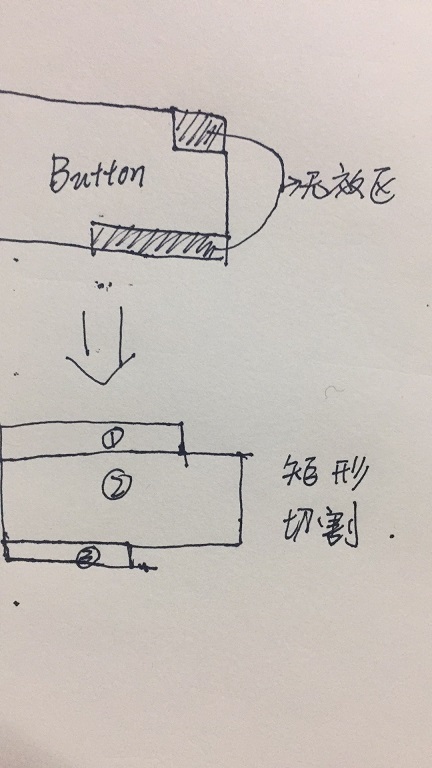 Button
无效区
①
②
③
矩形
切割